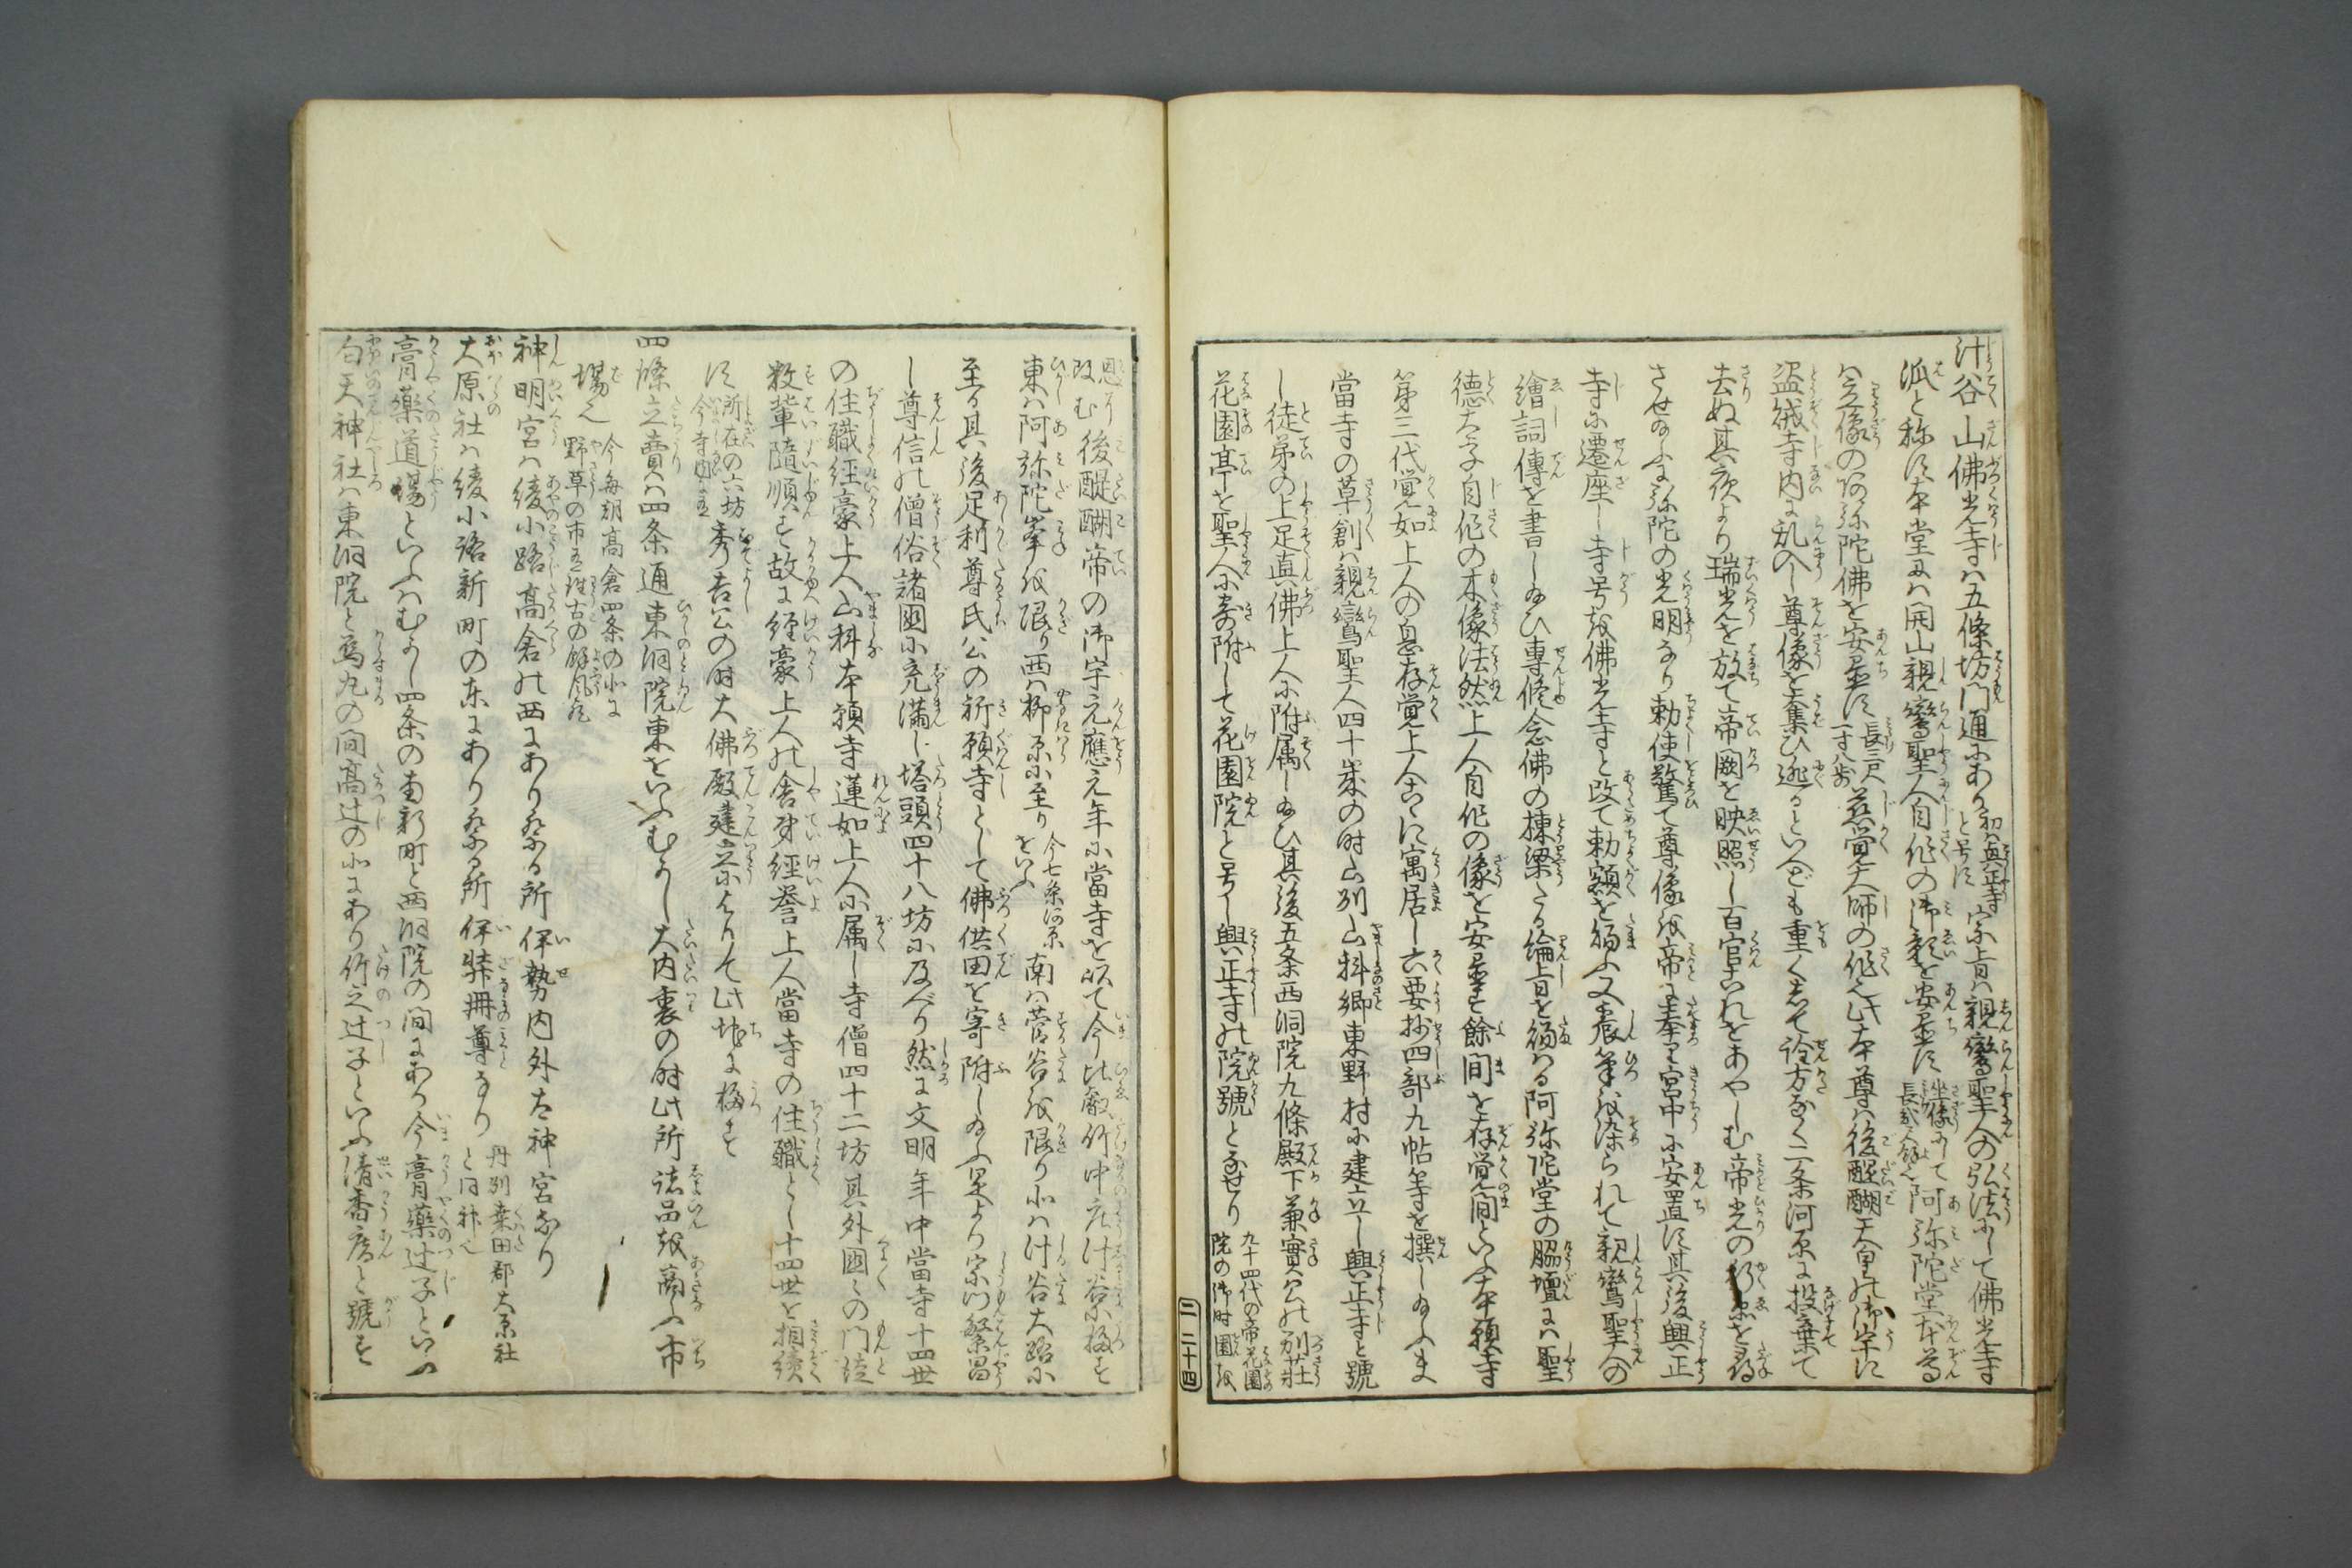 汁谷山佛光寺ハ五條坊門通にあり初ハ興正寺と号す宗旨ハ親鸞聖人の弘法にして佛光寺
派と称す本堂にハ開山親鸞聖人自作の御影を安置す坐像にて長弐尺余也阿弥陀堂本尊
ハ立像の阿弥陀佛を安置す長三尺一寸八歩慈覚大師の作也此本尊ハ後醍醐天皇の御宇に
盗絨寺内に乱入し尊像を奪ひ逃るといへども重くして詮方なく二条河原に投棄て
去ぬ其夜より瑞光を放て帝闕を映照し百官これをあやしむ帝光の行衛を尋
させ給ふに弥陀の光明なり勅使驚て尊像を帝に奉り宮中に安置す其後興正
寺に遷座し寺号を佛光寺と改て勅額を賜ふ又宸筆を染られて親鸞聖人の
繪詞傳を書し給ひ専修念佛の棟梁たる綸旨を賜はる阿弥陀堂の脇壇にハ聖
徳太子自作の木像法然上人自作の像を安置す餘間を存覚間といふ本願寺
第三代覚如上人の息存覚上人こゝに寓居し六要抄四部九帖等を撰し給ふ也
當寺の草創ハ親鸞聖人四十歳の時山州山科郷東野村に建立し興正寺と號
し徒弟の上足真佛上人に附属し給ひ其後五条西洞院九條殿下兼實公の別荘
花園亭を聖人に寄附して花園院と号し興正寺の院號となせり九十四代の帝花園院の御時園を
恩に改む後醍醐帝の御宇元應元年に當寺を以て今比叡竹中庄汁谷に移す
東ハ阿弥陀峯を限り西ハ柳原に至り今七条河原をいふ南ハ菅谷を限り北ハ汁谷大路に
至る其後足利尊氏公の祈願寺として佛供田を寄附し給ふ是より宗門繁昌
し尊信の僧俗諸國に充満し塔頭四十八坊に及べり然に文明年中當寺十四世
の住職経豪上人山科本願寺蓮如上人に属し寺僧四十二坊其外國々の門徒
数輩隨順す故に経豪上人の舎弟経誉上人當寺の住職とし十四世を相續
す所在の六坊今寺内に有秀吉公の時大佛殿建立によりて此地に移す
四條立賣ハ四条通東洞院東をいふむかし大内裏の時此所諸品を商ふ市
場也今毎朝高倉四条の北に野草の市有往古の餘風也
神明宮ハ綾小路高倉の西にあり祭る所伊勢内外太神宮なり
大原社ハ綾小路新町の東にあり祭る所伊弉冊尊なり丹州桒田郡大原社と同神也
膏藥道場といふハむかし四条の南新町と西洞院の間にあり今膏藥辻子といふ
白天神社ハ東洞院と烏丸の間高辻の北にあり竹之辻子といふ清香庵と號す
二 二十四